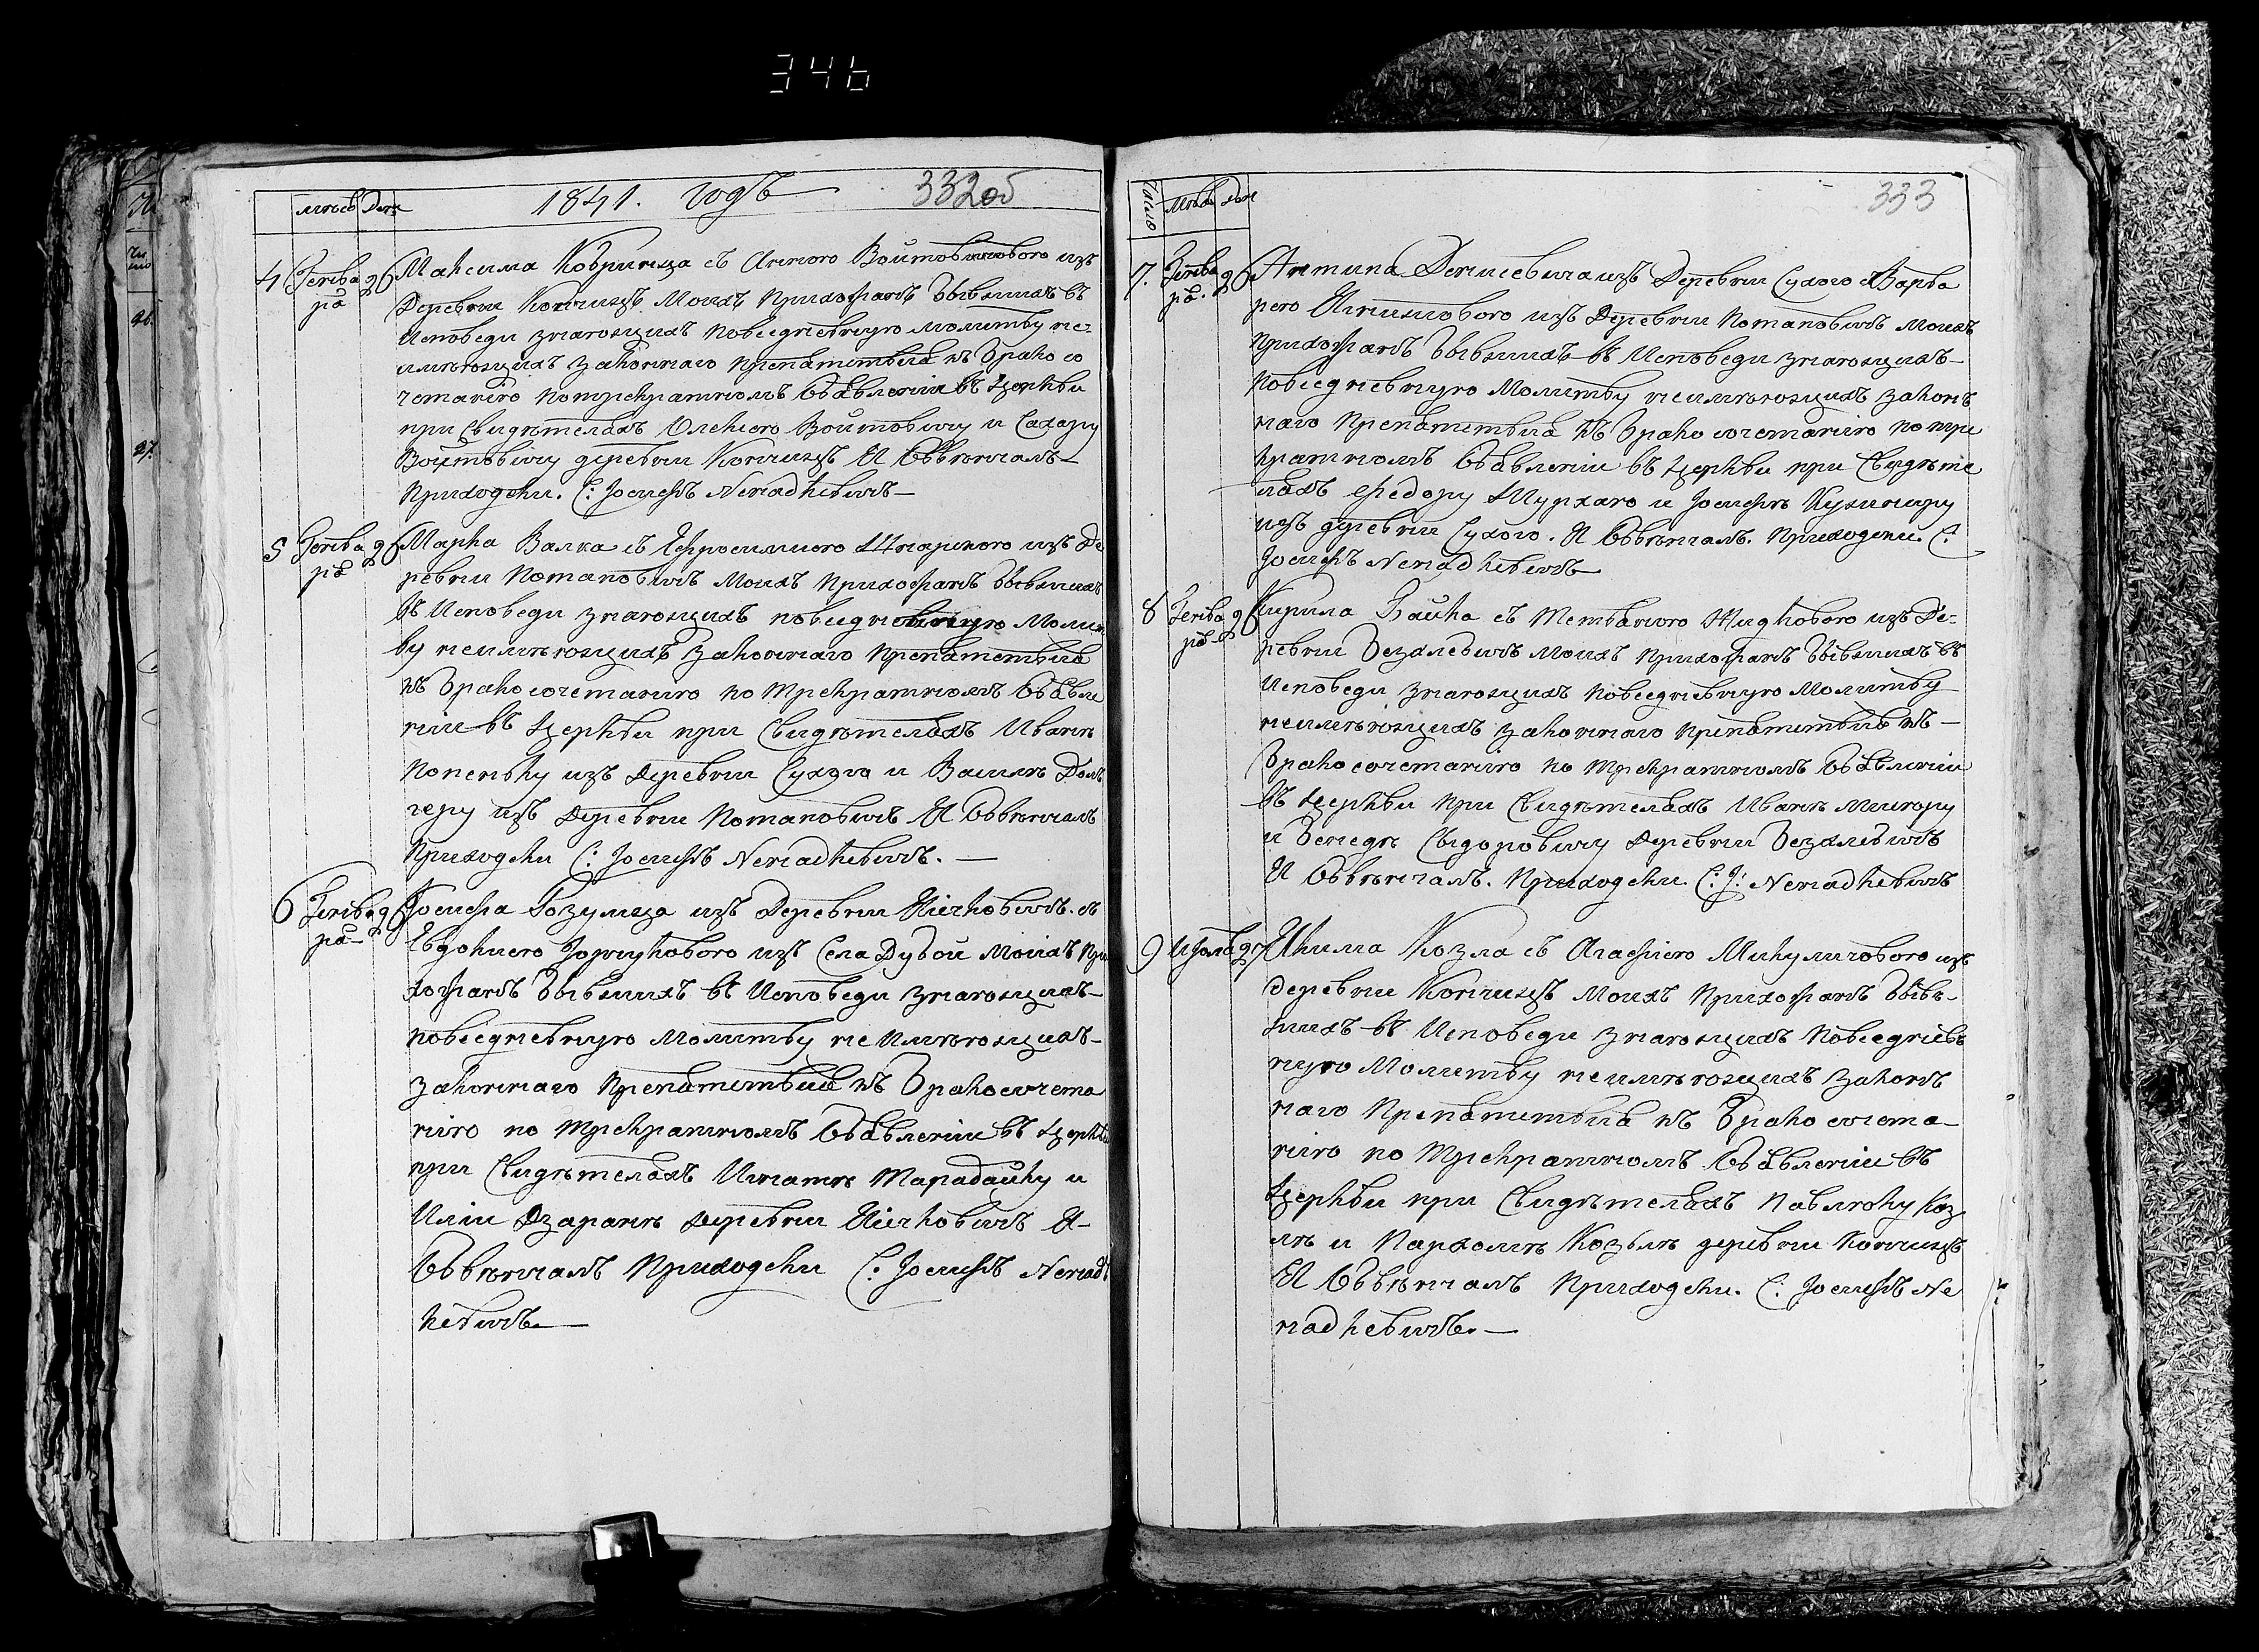 346
мѣсяц День 1841. годъ 332об
4 Генва 26 Максима Ковринца съ Анною Войтовичовою изъ
ря Деревни Кончицъ Моихъ Прихожанъ бывшихъ въ
Исповеди знающихъ Повседневную молитву не
имѣющихъ законнаго препятствія къ Брако со
четанію потрекратномъ Объявленіи въ Церкви
при Свидѣтеляхъ Олексею Войтовичу и Сахару
Войтовичу деревни Кончицъ Я Обвѣнчалъ
Приходски. С: Іосифъ Ненадкевичъ
5 Генва 26 Марка Валка съ Ефросиниою из Де
ря ревни Потаповичъ Моихъ Прихожанъ бывшихъ
въ Исповеди знающихъ повседневную Молит
ву неимѣющихъ Законнаго Препятствія
къ Бракосочетанию по Трекратномъ Объявле
ніи въ Церкви при Свидѣтеляхъ Иванѣ
Попеньку изъ Деревни Сухого и Василѣ Дол
геру изъ Деревни Потаповичъ Я Обвѣнчалъ
Приходски С: Іосифъ Ненадкевичъ.
6 Генва 26 Іосифа Гозумца изъ Деревни Ничковичъ. съ
ря Евдокиею изъ Села Дубои Моихъ При
хожанъ бывшихъ въ Исповеди знающихъ
повседневную Молитву не Имѣющихъ
законнаго Препятствія къ Бракосочета
нию по Трекратномъ Объявленіи въ Церкви
при Свидѣтеляхъ Игнатѣ Тарадайку и
Иліи Дзаранѣ деревни Ничковичъ Я
Обвѣнчалъ Приходски С: Іосифъ Ненад
кевичъ
число Мѣся дня 333
7. Генва 26 Антипа Денисевича изъ Деревни Сухого съ Варва
ря. рею изъ Деревни Потаповичъ моихъ
Прихожанъ бывшихъ въ Исповеди знающихъ
Повседневную Молитву неимѣющихъ законъ
наго Препятствія къ Брако сочетанию по тре
кратномъ Объявленіи въ Церкви при Свидѣте
ляхъ Федору и Іосифѣ Кушниру
изъ деревни Сухого. Я Обвѣнчалъ. Приходски. С:
Іосифъ Ненадкевичъ
8 Генва 26 Кирила Байка съ Тетьяною Жидковою изъ Де-
ря ревни Везалевичъ моихъ Прихожанъ бывшихъ въ
Исповеди знающихъ Повседневную Молитву
неимѣющихъ законнаго препятствія къ
Брако сочетанию по Трекратномъ Объявленіи
въ Церкви при Свидѣтеляхъ Иванѣ
и Бенедѣ Сыдоровичу Деревни Везалевичъ
Я Обвѣнчалъ. Приходски. С: І: Ненадкевичъ
9 27 Якима Козла съ Агафіею Микуличовою изъ
деревни Кончицъ Моихъ Прихожанъ бывъ-
шихъ въ Исповеди знающихъ Повседневъ
ную Молитву неимѣющихъ законъ
наго Препятствія къ Брако сочета-
нію по Трекратномъ Объявленіи въ
Церкви при Свидѣтеляхъ Павлюку Коз
лѣ и Пархомѣ Козьлѣ деревни Кончицъ
Я Обвѣнчалъ Приходски. С: Іосифъ Не
надкевичъ.